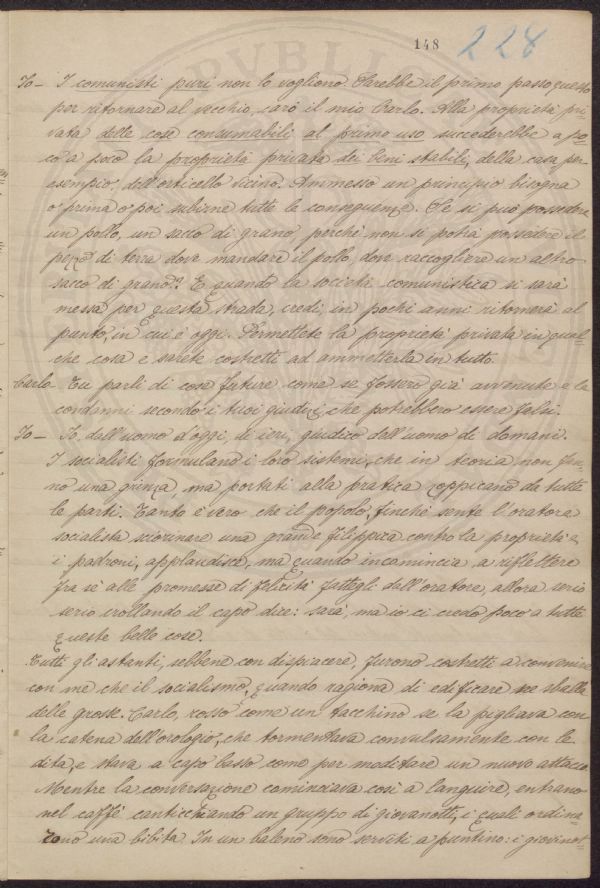 148 228
Io - I comunisti puri non lo vogliono. Sarebbe il primo passo questo
per ritornare al vecchio, caro il mio Carlo. Alla proprietà pri-
vata delle cose consumabili al primo uso succederebbe a po-
co a poco la proprietà privata dei beni stabili, della casa per
esempio, dell'orticello vicino. Ammesso un principio bisogna
o prima o poi subirne tutte le conseguenze. Se si può possedere
un pollo, un sacco di grano, perchè non si potrà possedere il
pezzo di terra dove mandare il pollo, dove raccogliere un altro
sacco di grano? E quando la società comunistica si sarà
messa per questa strada, credi, in pochi anni ritornerà al
punto, in cui è oggi. Permettete la proprietà privata in qual-
che cosa e sarete costretti ad ammetterla in tutto.
Carlo Tu parli di cose future come se fossero già avvenute e le
condanni secondo i tuoi giudizi, che potrebbero essere falsi.
Io - Io, dall'uomo d'oggi, di ieri, giudico dell'uomo di domani.
I socialisti formulano i loro sistemi, che in teoria non fan-
no una grinza, ma portati alla pratica zoppicano da tutte
le parti. Tanto è vero che il popolo, finchè sente l'oratore
socialista sciorinare una grande filippica contro la proprietà e
i padroni, applaudisce, ma quando incomincia a riflettere
fra sè alle promesse di felicità fattegli dall'oratore, allora serio
serio crollando il capo dice: sarà, ma io ci credo poco a tutte
queste belle cose.
Tutti gli astanti, sebbene con dispiacere, furono costretti a convenire
con me che il socialismo, quando ragiona di edificare ne sballa
delle grosse. Carlo, rosso come un tacchino se la pigliava con
la catena dell'orologio, che tormentava convulsamente con le
dita, e stava a capo basso come per meditare un nuovo attacco.
Mentre la conversazione cominciava così a languire, entrano
nel caffè canticchiando un gruppo di giovanotti, i quali ordina-
rono una bibita. In un baleno sono serviti a puntino: i giovinot-